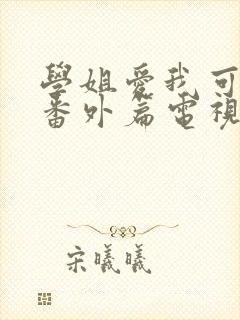 學姐愛我可
番外篇電視
宋曦曦